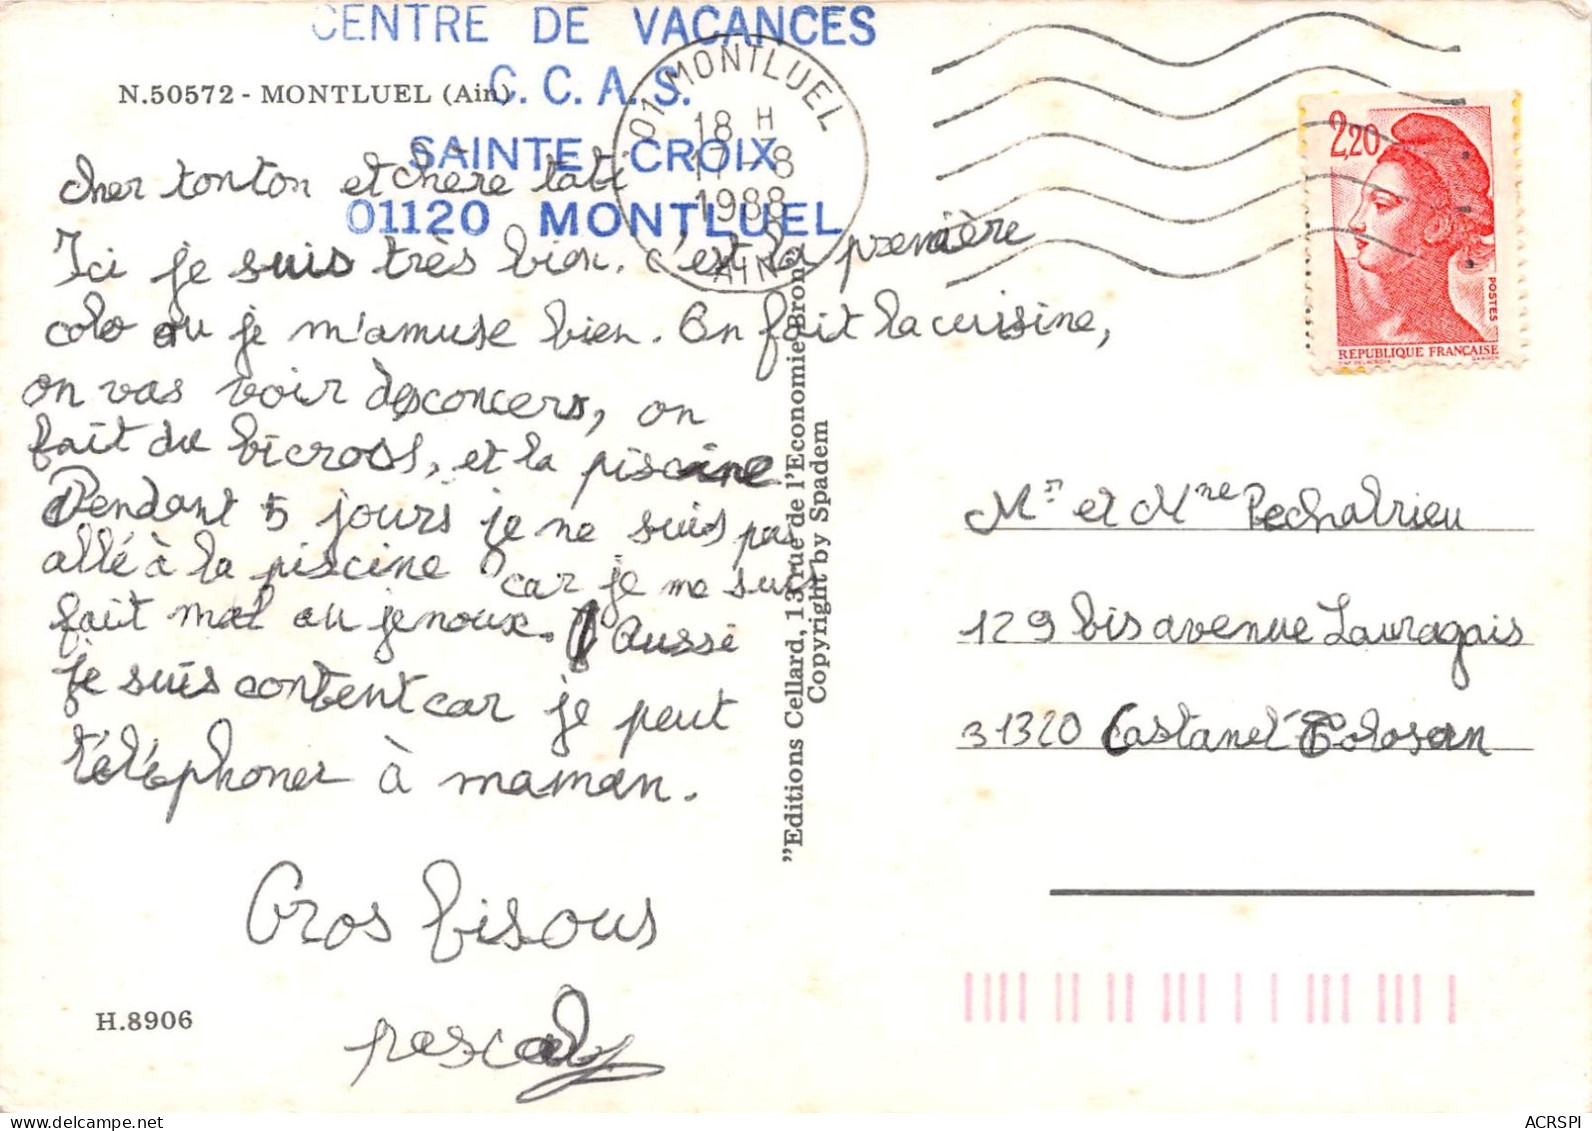 CENTRE DE VACANCES
C. C. A. S.
SAINTE CROIX
01120 MONTLUEL
N.50572 - MONTLUEL (Ain)
01 MONTLUEL
18 H
17 - 8
1988
AIN
2,20
POSTES
REPUBLIQUE FRANÇAISE
cher tonton et chère tati
Ici je suis très bien. c'est la première
colo ou je m'amuse bien. On fait la cuisine,
on vas voir des concers, on
fait du bicross, et la piscine
Pendant 5 jours je ne suis pas
allé à la piscine car je me suis
fait mal au jenoux. Aussi
je suis content car je peut
téléphoner à maman.
Gros bisous
pascal
H.8906
"Editions Cellard, 13 rue de l'Economie Bron"
Copyright by Spadem
Mr et Mme Pechalrieu
129 bis avenue Lauragais
31320 Castanet Tolosan
ACRSPI